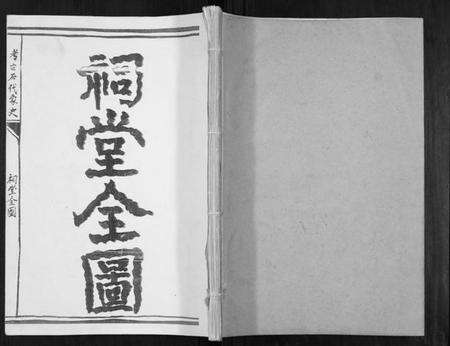 祠堂全圖
考古歷代家史
祠堂全圖